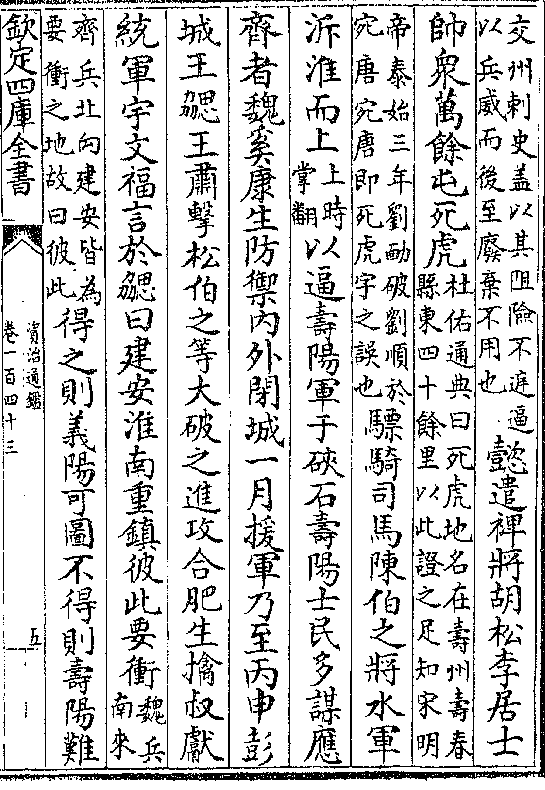 交州刺史盖以其阻險不逼
以兵威而後至廢棄不用也
懿遣裨將胡松李居士
帥衆萬餘屯死虎
杜佑通典曰死虎地名在壽州壽春
縣東四十餘里以此證之足知宋明
帝泰始三年劉勔破劉順於
宛唐宛唐即死虎字之誤也
驃騎司馬陳伯之將水軍
泝淮而上
上時
掌翻
以逼壽陽軍于硤石壽陽士民多謀應
齊者魏奚康生防禦內外閉城一月援軍乃至丙申彭
城王勰王肅擊松伯之等大破之進攻合肥生擒叔獻
統軍宇文福言於勰曰建安淮南重鎮彼此要衝
魏兵
南來
齊兵北向建安皆為
要衝之地故曰彼此
得之則義陽可圖不得則壽陽難
欽定四庫全書
資治通鑑
卷一百四十三
五